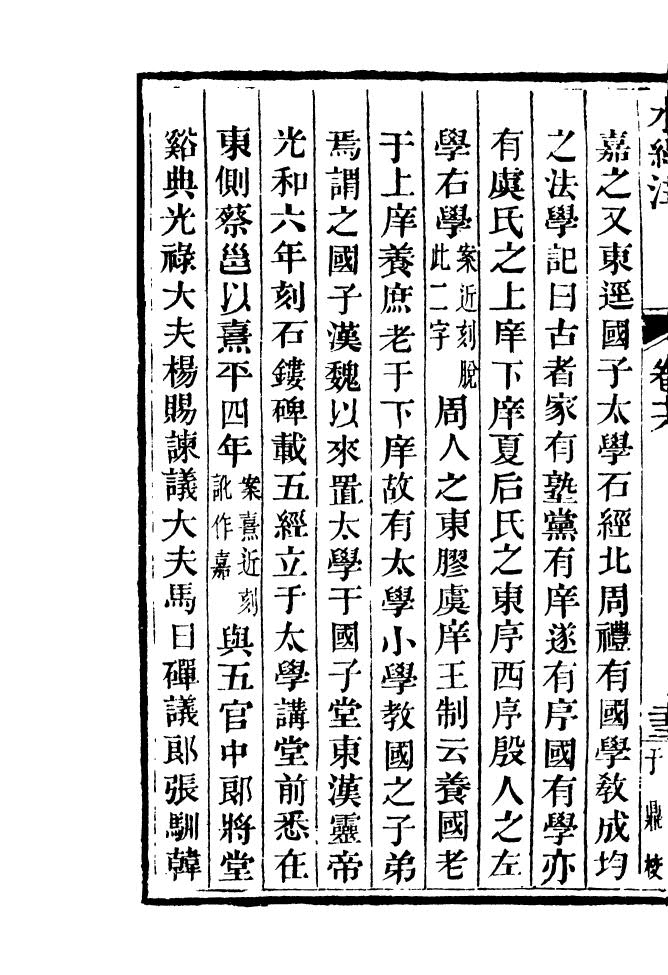 水經注
卷六
于鼎校
嘉之又東逕國子太學石經北周禮有國學敎成均
之法學記曰古者家有塾黨有庠遂有序國有學亦
有虞氏之上庠下庠夏后氏之東序西序殷人之左
學右學案近刻脫此二字周人之東膠虞庠王制云養國老
于上庠養庶老于下庠故有太學小學教國之子弟
焉謂之國子漢魏以來置太學于國子堂東漢靈帝
光和六年刻石鏤碑載五經立于太學講堂前悉在
東側蔡邕以熹平四年案熹近刻訛作嘉與五官中郞將堂
谿典光祿大夫楊賜諫議大夫馬日磾議郞張馴韓